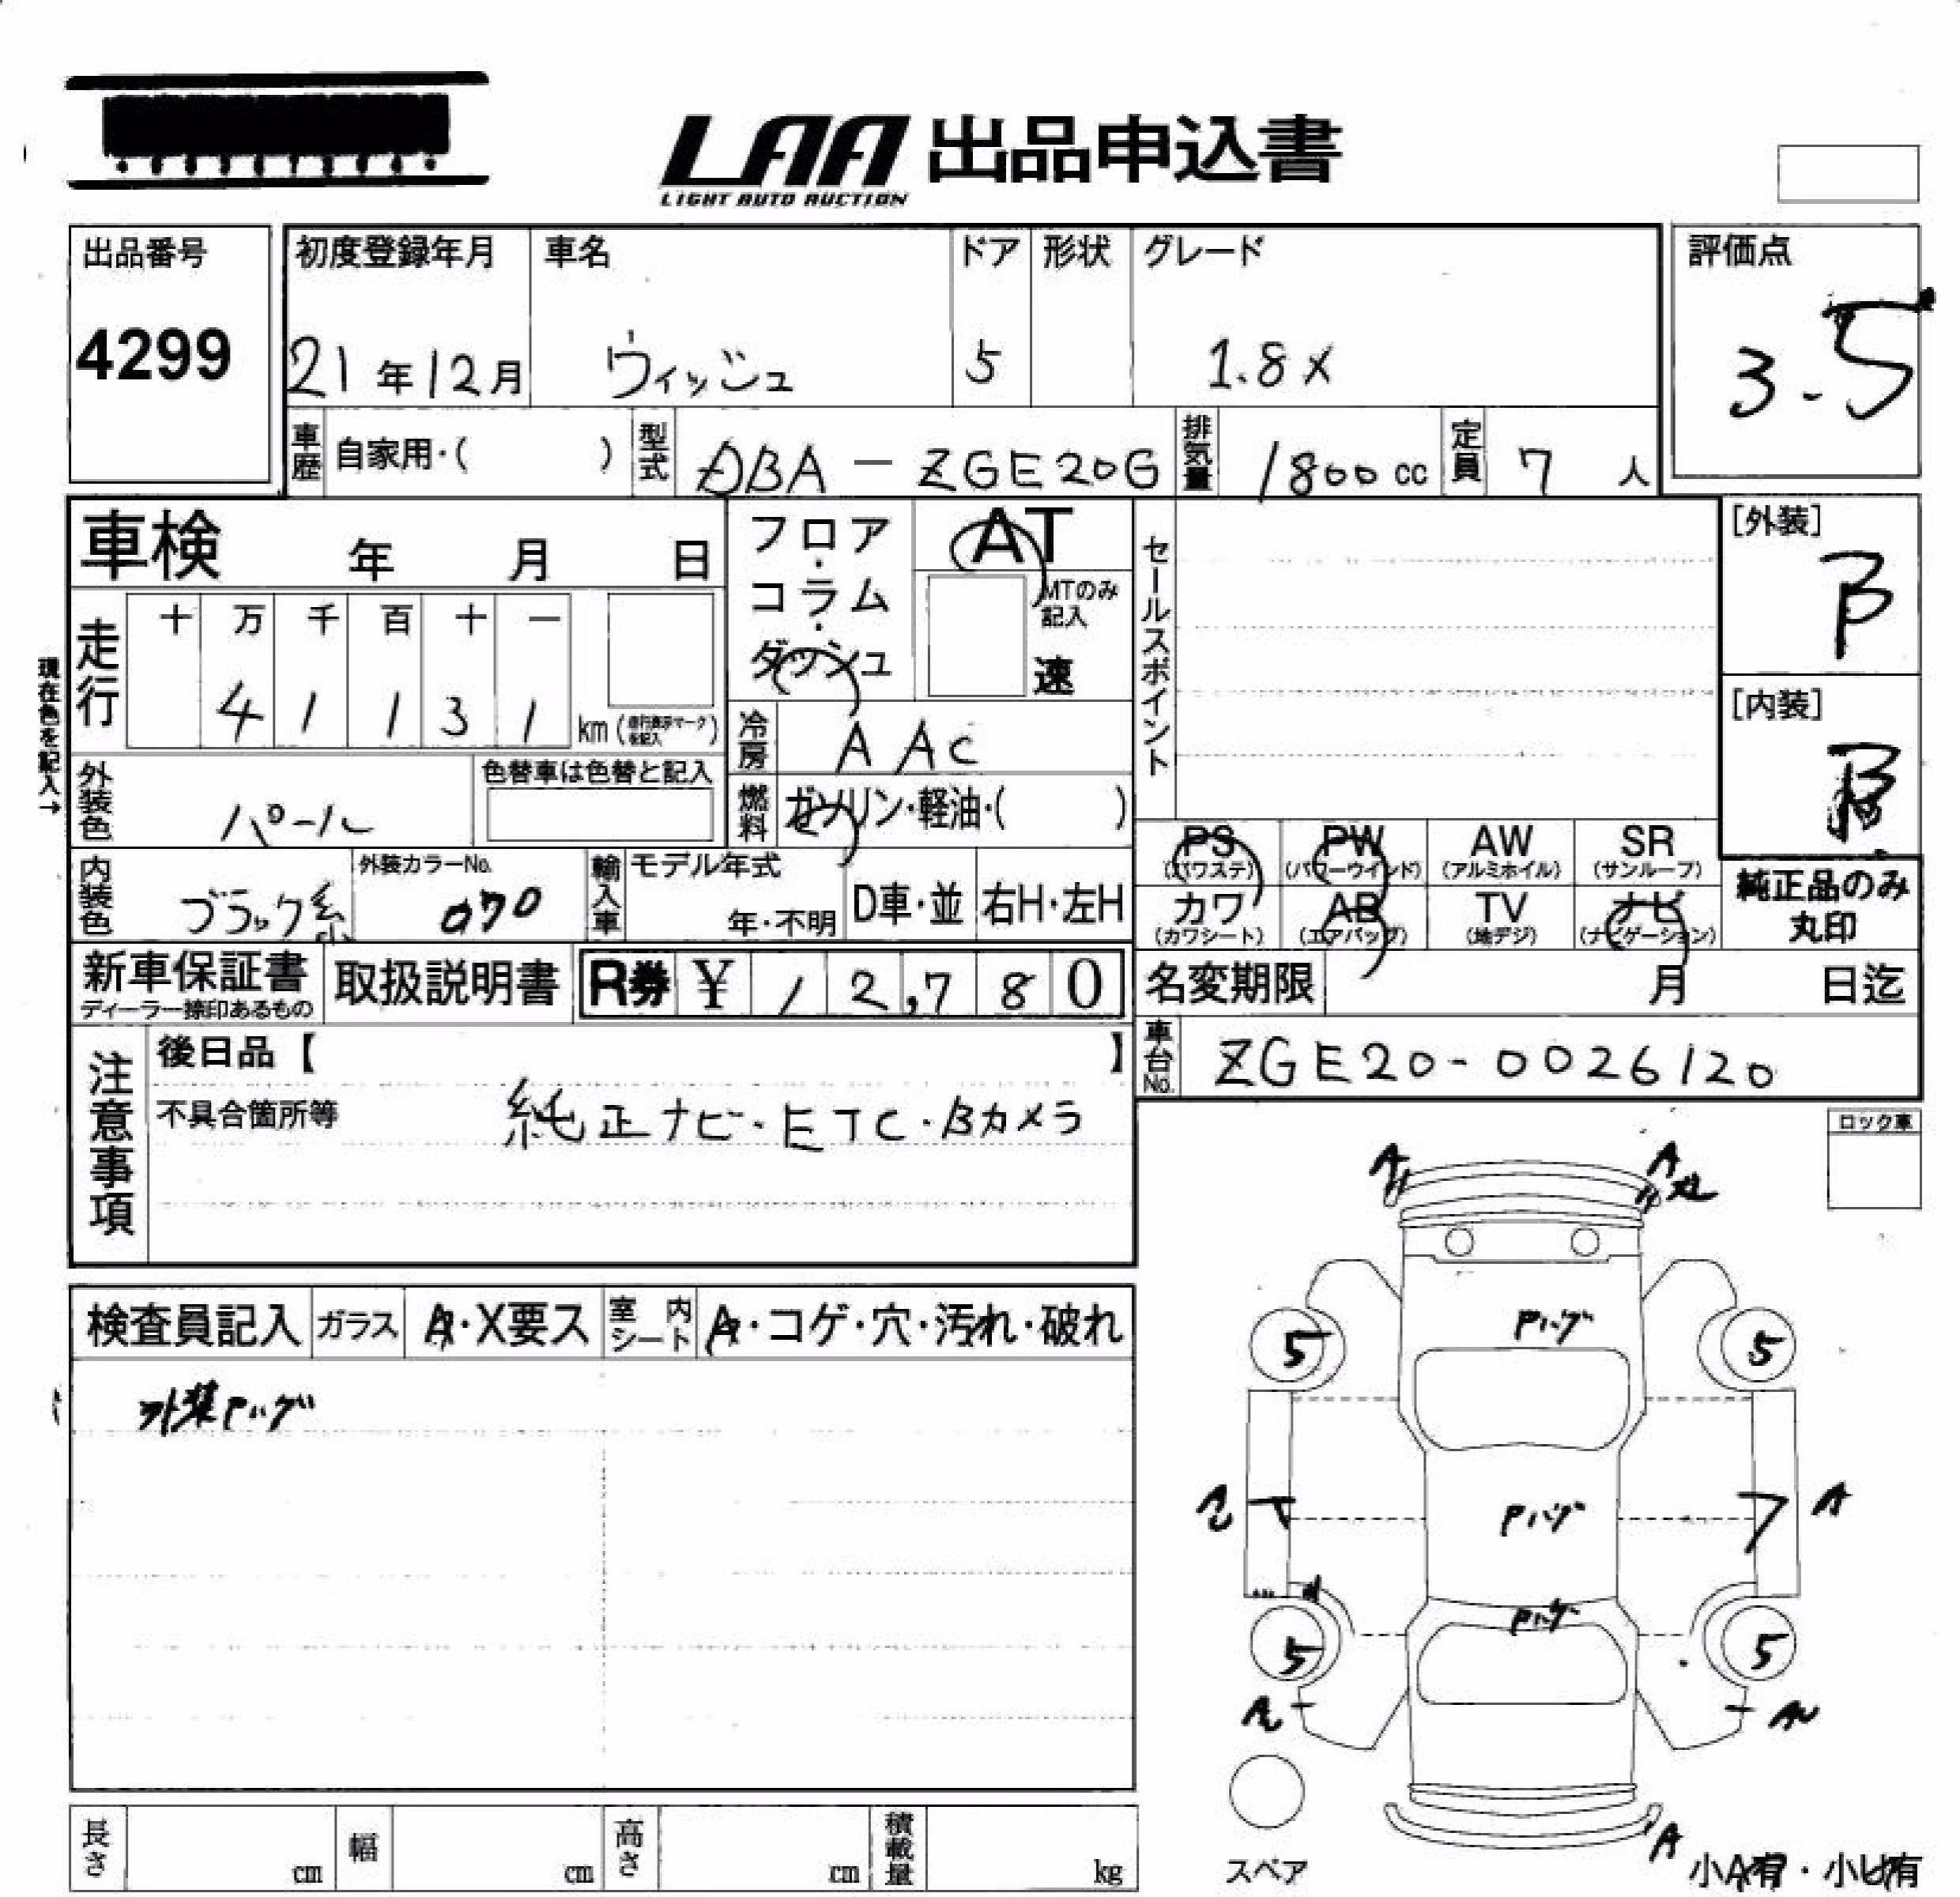 LAA 出品申込書
LIGHT AUTO AUCTION
出品番号 初度登録年月 車名 ドア 形状 グレード 評価点
4299 21年12月 ウィッシュ 5 1.8X 3.5
車歴 自家用・( ) 型式 DBA-ZGE20G 排気量 1800cc 定員 7人
車検 年 月 日
フロア・コラム・ダッシュ
AT
MTのみ記入
速
セールスポイント
[外装]
B
[内装]
B
現在色を記入→
走行 十 万 千 百 十 一
4 1 1 3 1 km(走行表示マークを記入)
冷房 AAC
外装色 パール 色替車は色替と記入
燃料 ガソリン・軽油・( )
PS (パワステ) PW (パワーウインド) AW (アルミホイル) SR (サンルーフ)
カワ (カワシート) AB (エアバッグ) TV (地デジ) ナビ (ナビゲーション)
純正品のみ
丸印
内装色 ブラック系 外装カラーNo. 070 輸入車 モデル年式 年・不明 D車・並 右H・左H
新車保証書 取扱説明書 R券 ¥ 12,780 名変期限 月 日迄
ディーラー捺印あるもの
車台No. ZGE20-0026120
注意事項
後日品【 】
不具合箇所等 純正ナビ・ETC・Bカメラ
ロック車
A A
検査員記入 ガラス A・X要ス 室内シート A・コゲ・穴・汚れ・破れ
外装Pハゲ
Pハゲ
5 5
Pハゲ
A
Pハゲ
5 5
A
スペア
小A有・小U有
長さ cm 幅 cm 高さ cm 積載量 kg